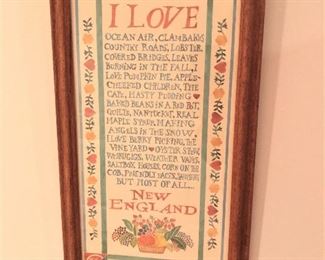 I LOVE
OCEAN AIR, CLAMBAKES
COUNTRY ROADS, LOBSTER
COVERED BRIDGES, LEAVES
BURNING IN THE FALL, I
LOVE PUMPKIN PIE, APPLE-
CHEEKED CHILDREN, THE
CAPE, HASTY PUDDING
BAKED BEANS IN A RED POT,
QUILTS, NANTUCKET, REAL
MAPLE SYRUP, MAKING
ANGELS IN THE SNOW,
I LOVE BERRY PICKING, THE
VINEYARD OYSTER STEW,
WEATHER VANES,
SALTBOX HOUSES, CORN ON THE
COB, FRIENDLY FACES,
BUT MOST OF ALL...
NEW
ENGLAND